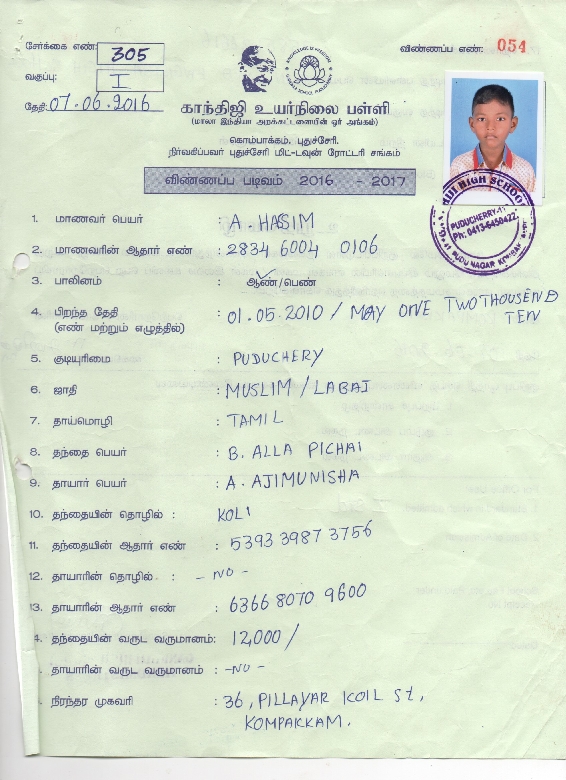 சேர்க்கை எண்: 305
விண்ணப்ப எண்: 054
வகுப்பு: I
தேதி: 07.06.2016
காந்திஜி உயர்நிலை பள்ளி
(மாலா இந்தியா அறக்கட்டளையின் ஓர் அங்கம்)
கொம்பாக்கம், புதுச்சேரி.
நிர்வகிப்பவர் புதுச்சேரி மிட்-டவுன் ரோட்டரி சங்கம்
விண்ணப்ப படிவம் 2016 - 2017
HIGH SCHOOL
PUDUCHERRY-
Ph: 0413-6450422
PUDU NAGAR
1. மாணவர் பெயர் : A. HASIM
2. மாணவரின் ஆதார் எண் : 2834 6004 0106
3. பாலினம் : ஆண்/பெண்
4. பிறந்த தேதி : 01.05.2010 / MAY ONE TWO THOUSEND
(எண் மற்றும் எழுத்தில்) TEN
5. குடியுரிமை : PUDUCHERY
6. ஜாதி : MUSLIM / LABAI
7. தாய்மொழி : TAMIL
8. தந்தை பெயர் : B. ALLA PICHAI
9. தாயார் பெயர் : A. AJIMUNISHA
10. தந்தையின் தொழில் : KOLI
11. தந்தையின் ஆதார் எண் : 5393 3987 3756
12. தாயாரின் தொழில் : - NO -
13. தாயாரின் ஆதார் எண் : 6366 8070 9600
4. தந்தையின் வருட வருமானம்: 12,000 /
. தாயாரின் வருட வருமானம் : -NO -
. நிரந்தர முகவரி : 36, PILLAYAR KOIL St,
KOMPAKKAM.